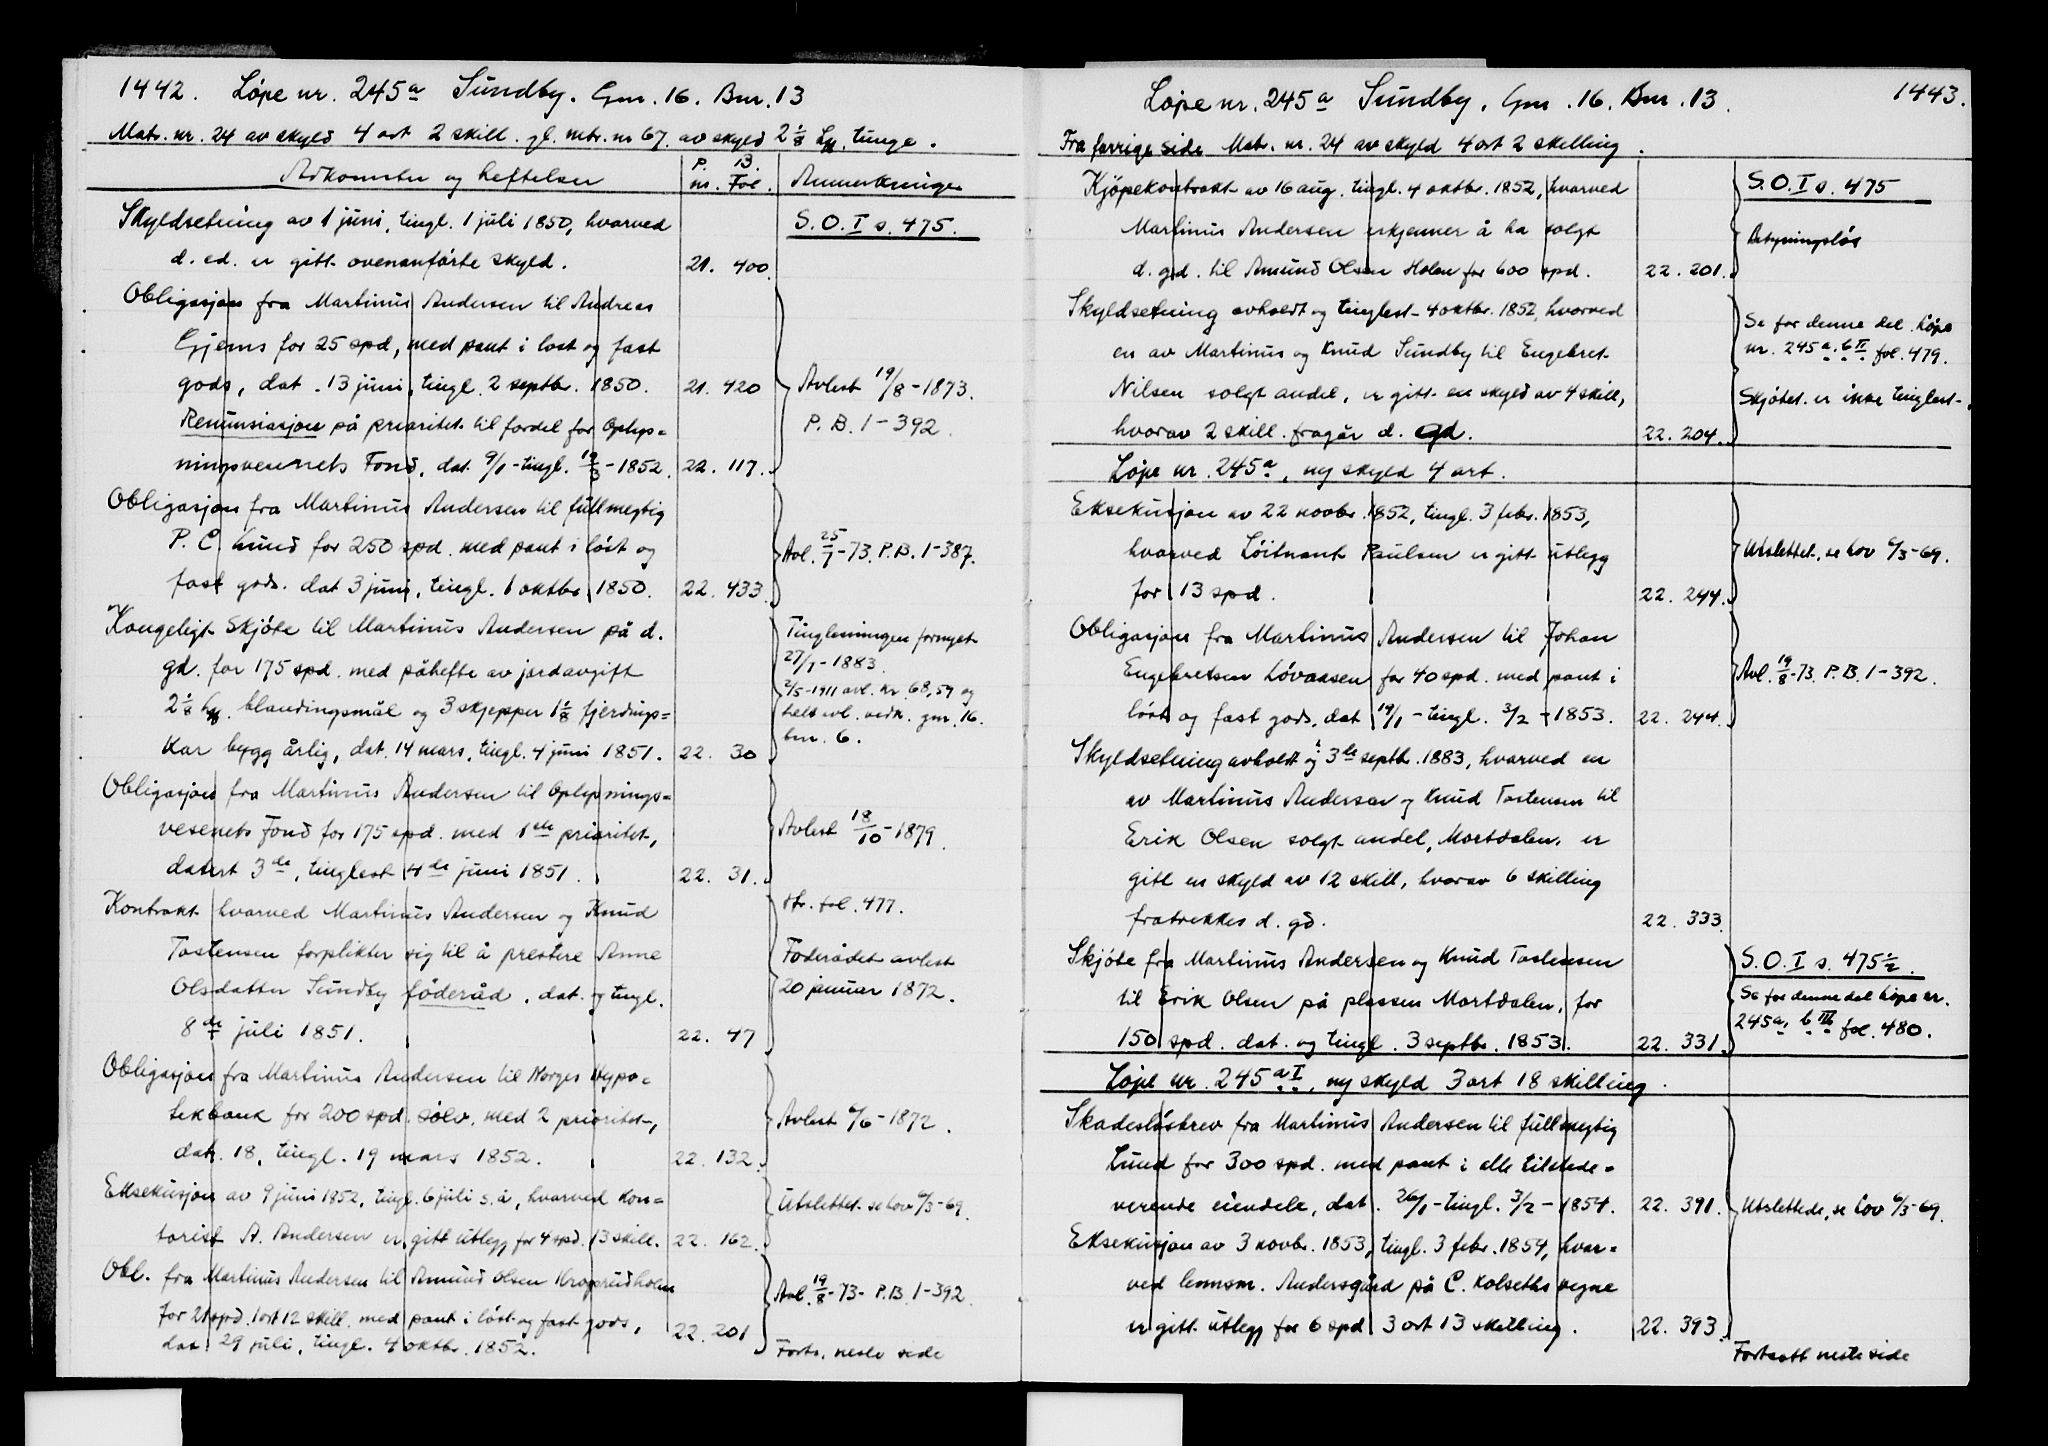 1442. Løpe nr. 245a Sundby. Gnr. 16. Bnr. 13
Matr. nr. 24 av skyld 4 ort 2 skill. gl. mtr. nr 67. av skyld 2 1/8 Lpd. tunge.
Adkomster og heftelser P. B. nr. Fol. Anmerkninger
Skyldsetning av 1 juni, tingl. 1 juli 1850, hvorved S.O. I s. 475.
d. ed. er gitt ovenanførte skyld. 21. 400.
Obligasjon fra Martinus Andersen til Andreas
Gjems for 25 spd, med pant i løst og fast
gods, dat. 13 juni, tingl. 2 septbr. 1850. 21. 420 Avlest 19/8-1873.
Renunsiasjon på prioritet til fordel for Oplys= P.B. 1-392.
ningsvesenets Fond, dat. 9/1-tingl. 19/3-1852. 22. 117.
Obligasjon fra Martinus Andersen til fullmegtig
P. C. Lund for 250 spd. med pant i løst og Avl. 25/7-73. P.B. 1-387.
fast gods. dat 3 juni, tingl. 1 oktbr. 1850. 22. 433
Kongeligt Skjøte til Martinus Andersen på d. Tinglesningen fornyet
gd. for 175 spd. med påhefte av jordavgift 27/7-1883.
2 1/8 Lpd. blandingsmål og 3 skjepper 1 1/8 fjerdings= 2/5-1911 avl. nr. 68,59 og
helt avl. vedk. gnr. 16.
kar bygg årlig, dat. 14 mars, tingl. 4 juni 1851. 22. 30 bnr. 6.
Obligasjon fra Martinus Andersen til Oplysnings=
vesenets Fond for 175 spd. med 1ste prioritet, Avlest 18/10-1879.
datert 3de, tinglest 4de juni 1851. 22. 31.
Kontrakt hvorved Martinus Andersen og Knud Str. fol. 477.
Tostensen forplikter sig til å prestere Anne Føderådet avlest
Olsdatter Sundby føderåd, dat. og tingl. 20 januar 1872.
8de juli 1851. 22. 47
Obligasjon fra Martinus Andersen til Norges Hypo=
tekbank for 200 spd. sølv. med 2 prioritet, Avlest 6/6-1872.
dat. 18, tingl. 19 mars 1852. 22. 132.
Eksekusjon av 9 juni 1852, tingl. 6 juli s. å, hvorved kon= Utslettet. se lov 6/3-69.
torist A. Andersen er gitt utlegg for 4 spd. 13 skill. 22. 162.
Obl. fra Martinus Andersen til Amund Olsen
for 21 spd. 1 ort 12 skill. med pant i løst og fast gods, 22. 201 Avl. 19/8-73- P.B. 1-392.
dat. 29 juli, tingl. 4 oktbr. 1852. Forts. neste side
Løpe nr. 245a Sundby. Gnr. 16. Bnr. 13. 1443.
Fra forrige side Matr. nr. 24 av skyld 4 ort 2 skilling.
Kjøpekontrakt av 16 aug. tingl. 4 oktbr. 1852, hvorved S.O. I s. 475
Martinus Andersen erkjenner å ha solgt Betydningsløs
d. gd. til Amund Olsen Holen for 600 spd. 22. 201.
Skyldsetning avholdt og tinglest 4 oktbr. 1852, hvorved Se for denne del løpe
en av Martinus og Knud Sundby til Engebret nr. 245a, b II fol. 479.
Nilsen solgt andel, er gitt en skyld av 4 skill, Skjøtet er ikke tinglest.
hvorav 2 skill. fragår d. gd. 22. 204.
Løpe nr. 245a, ny skyld 4 ort.
Eksekusjon av 22 novbr. 1852, tingl. 3 febr. 1853,
hvorved Løitnant Paulsen er gitt utlegg Utslettet, se lov 6/3-69.
for 13 spd. 22. 244.
Obligasjon fra Martinus Andersen til Johan
Engebretsen Løvaasen for 40 spd. med pant i Avl. 19/8-73. P.B. 1-392.
løst og fast gods, dat 19/1-tingl. 3/2-1853. 22. 244.
Skyldsetning avholdt og t. 3de septbr. 1883, hvorved en
av Martinus Andersen og Knud Tostensen til
Erik Olsen solgt andel, Mortdalen, er
gitt en skyld av 12 skill, hvorav 6 skilling
fratrekkes d. gd. 22. 333.
Skjøte fra Martinus Andersen og Knud Tostensen S.O. I s. 475 1/2.
til Erik Olsen på plassen Mortdalen, for Se for denne del løpe nr.
150 spd. dat. og tingl. 3 septbr. 1853. 22. 331. 245a, b III fol. 480.
Løpe nr. 245a I, ny skyld 3 ort 18 skilling.
Skadesløsbrev fra Martinus Andersen til fullmegtig
Lund for 300 spd. med pant i alle tilstede=
verende eiendele, dat. 26/1-tingl. 3/2-1854. 22. 391. Utslettede, se lov 6/3-69.
Eksekusjon av 3 novbr. 1853, tingl. 3 febr. 1854, hvor=
ved lensm. Andersgård på C. Kolseths vegne
er gitt utlegg for 6 spd 3 ort 13 skilling. 22. 393.
Fortsatt neste side